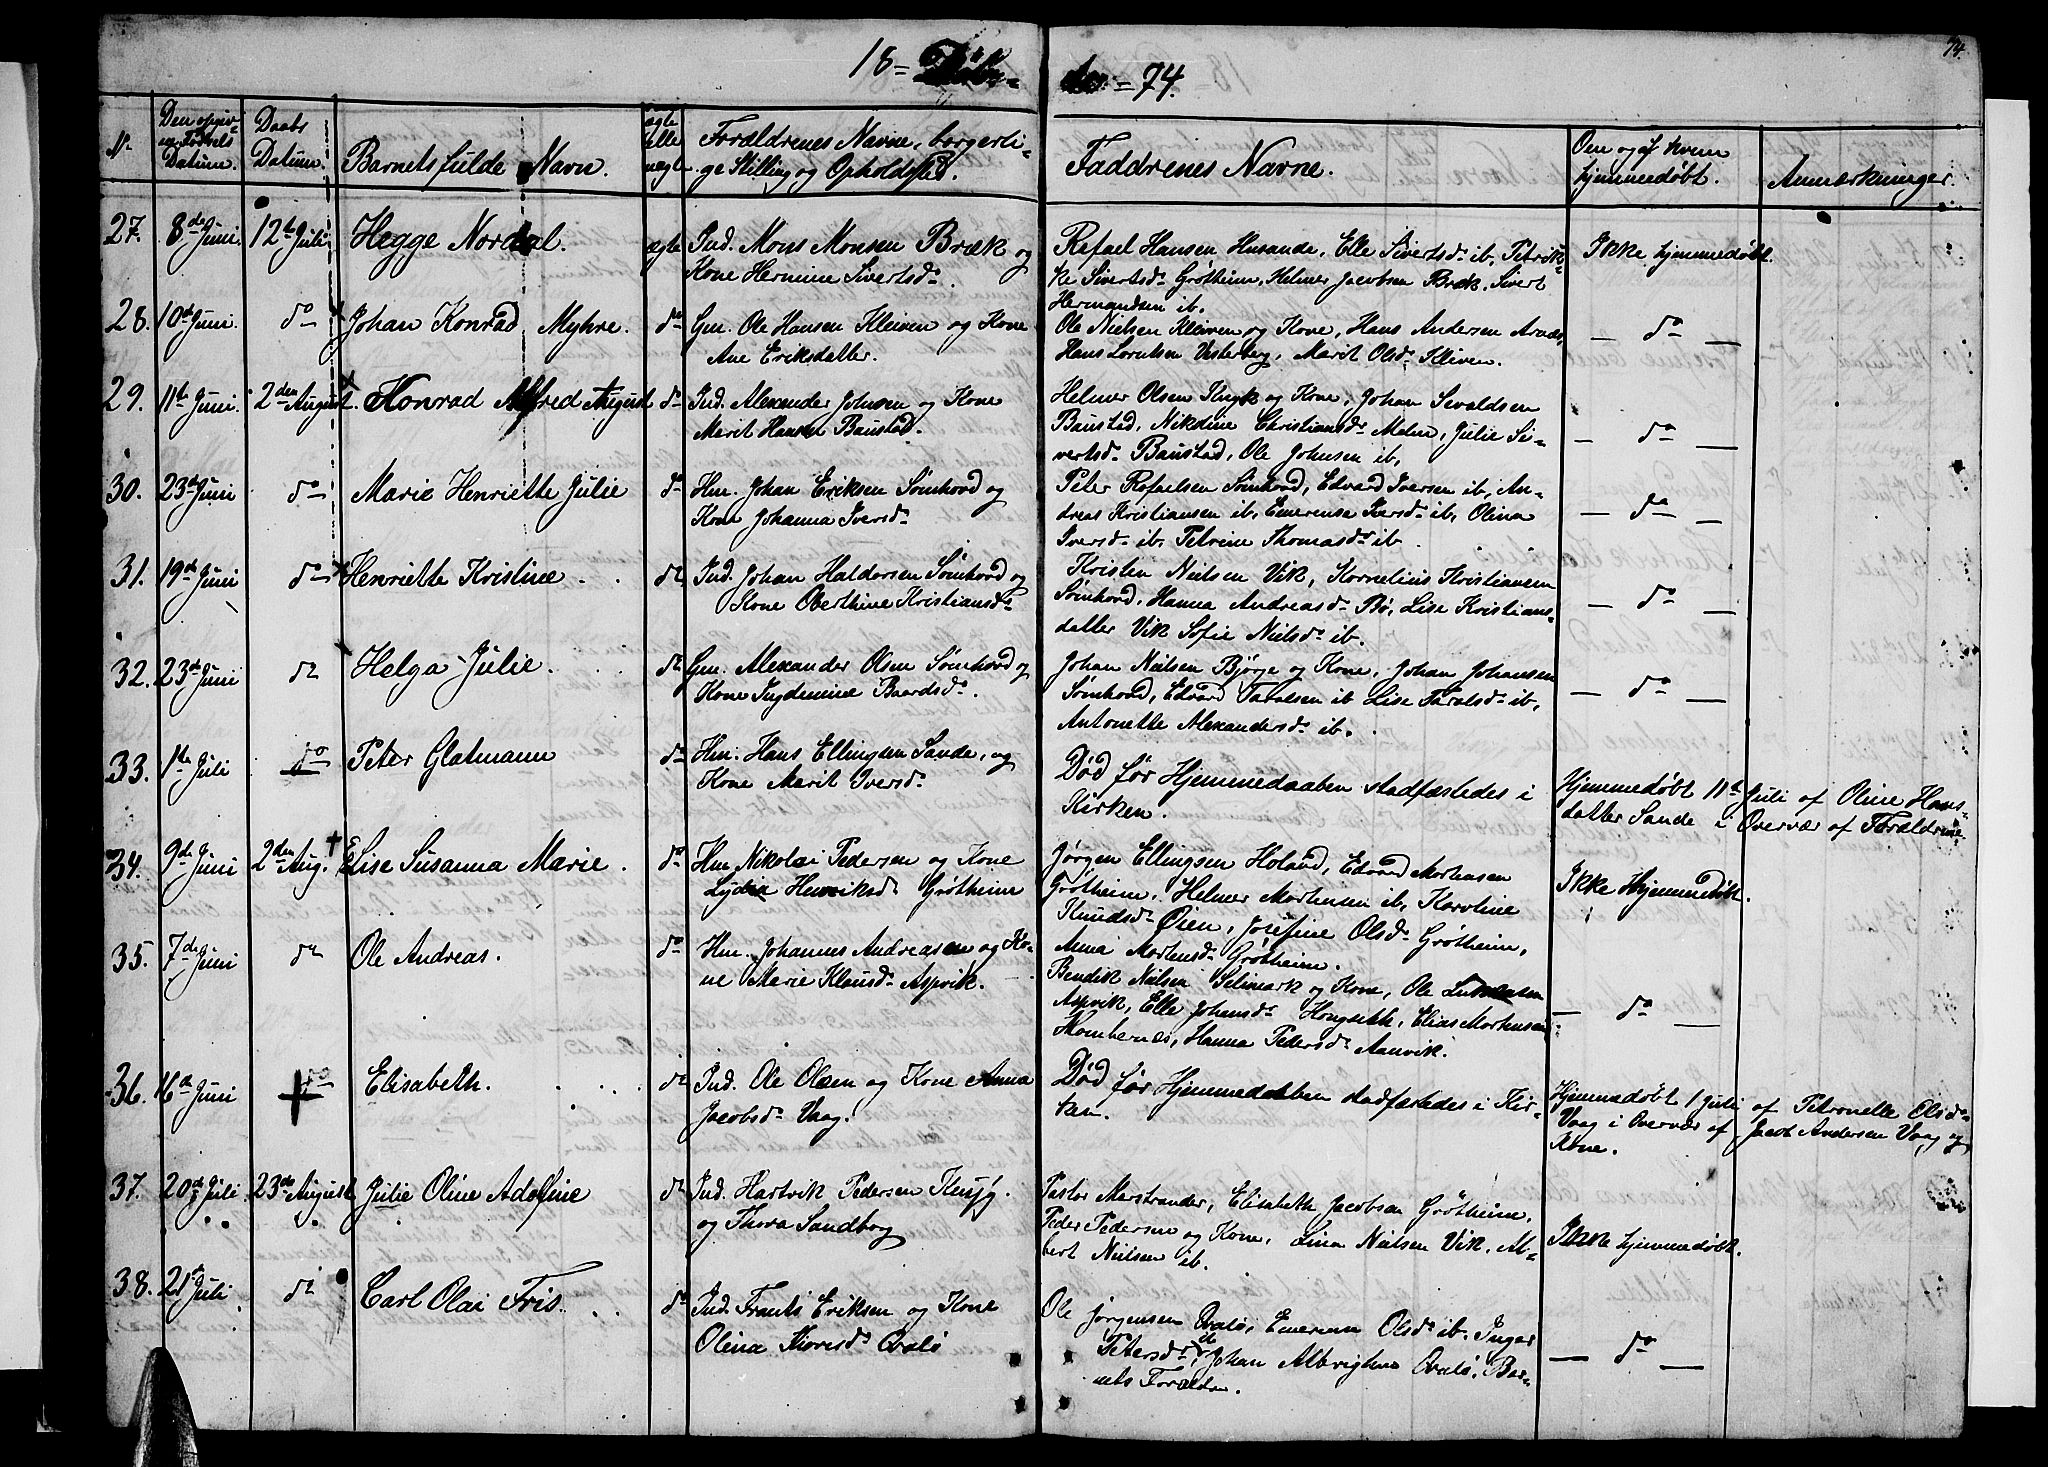 74.
18= Døb= te. =74.
№
Den opgiv=
ne Fødsels
Datum.
Daabs
Datum.
Barnets fulde Navn.
ægte
elle
uægte
Forældrenes Navne, borgerli=
ge Stilling og Opholdsted.
Faddrenes Navne.
Om og af hvem
hjemmedøbt.
Anmærkninger.
27. 8de Juni. 12te Juli Hegge Nordal. ægte
Ind. Mons Monsen Bræk og
Kone Hermine Sivertsd.
Rafael Hansen Husande, Elle Sivertsd. ib, Petrik=
ke Sivertsd. Grøtheim, Helmer Jacobsen Bræk, Sivert
Hermandsen ib.
Ikke hjemmedøbt.
28. 10de Juni. do Johan Konrad Myhre. do
Gm. Ole Hansen Kleiven og Kone
Ane Eriksdatter.
Ole Nielsen Kleiven og Kone, Hans Andersen
Hans Lorntsen Vesterberg, Marit Olsd. Kliven.
— do —
29. 11te Juni. 2den August. Konrad Alfred August do
Ind. Alexander Johnsen og Kone
Marit Hansen Baustad.
Helmer Olsen Knyk og Kone, Johan Sevaldsen
Baustad, Nikoline Christiansd. Melen, Julie Si=
vertsd. Baustad, Ole Johnsen ib.
— do —
30. 23de Juni do Marie Henriette Julie do
Hm. Johan Eriksen Sømhovd og
Kone Johanna Iversd.
Peter Rafaelsen Sømhovd, Edvard Iversen ib, An=
dreas Kristiansen ib, Emerense Iversd. ib, Olina
Iversd. ib, Petrine Thomasd. ib
— do —
31. 19de Juni do Henriette Kristine do
Ind. Johan Haldorsen Sømhovd og
Kone Oberthine Kristiansd.
Kristen Nielsen Vik, Kornelius Kristiansen
Sømhovd, Hanna Andreasd. Bø, Lise Kristians=
datter Vik Sofie Nielsd. ib.
— do —
32. 23de Juni do Helga Julie. do
Gm. Alexander Olsen Sømhovd og
Kone Ingdemine Baardsd.
Johan Nielsen Bjørge og Kone, Johan Johansen
Sømhovd, Edvard Taralsen ib Lise Taralsd. ib,
Antonette Alexandersd. ib.
— do —
33. 1ste Juli do Peter Glatmann do
Hm. Hans Ellingsen Sande, og
Kone Marit Iversd.
Død før Hjemmedaaben stadfæstedes i
Kirken.
Hjemmedøbt 11te Juli af Oline Hans=
datter Sande i Overvær af Forældrene
34. 9de Juni 2den Aug. + Elise Susanna Marie. do
Hm Nikolai Pedersen og Kone
Lydia Henriksd. Grøtheim
Jørgen Ellingsen Holand, Edvard Mortensen
Grøtheim, Helmer Mortensen ib, Karoline
Knudsd. Øien, Josefine Olsd. Grøtheim,
Anna Mortensd. Grøtheim.
Ikke Hjemmedøbt.
35. 7de Juni do Ole Andreas. do
Hm. Johannes Andreasen og Ko=
ne Marie Klausd. Aspvik.
Bendik Nielsen Selimark og Kone, Ole
Aspvik, Elle Johansd. Hongseth, Elias Mortensen
Hombernes, Hanna Pedersd. Aanvik.
— do —
36. 16de Juni do Elisabeth. do
Ind. Ole Olsen og Kone Anna
Jacobsd. Vaag.
Død før Hjemmedaaben stadfæstedes i Kir=
ken.
Hjemmedøbt 1 Juli af Petronelle Olsd.
Vaag i Overvær af Jacob Andersen Vaag og
Kone.
37. 20de Juli 23de August Julie Oline Adolfine do
Ind. Hartvik Pedersen
og Thora Sandborg
Pastor Marstrander, Elisabeth Jacobsen Grøtheim,
Peder Pedersen og Kone, Lina Nielsen Vik, Al=
bert Nielsen ib.
Ikke hjemmedøbt.
38. 21de Juli do Carl Olai Fris. do
Ind. Frants Eriksen og Kone
Olina Thorisd. Qvalø
Ole Jørgensen Qvalø, Emerense Olsd. ib. Inger
Petersd. ib, Johan Albrigtsen Qvalø, Bar=
nets Forældre.
— do —